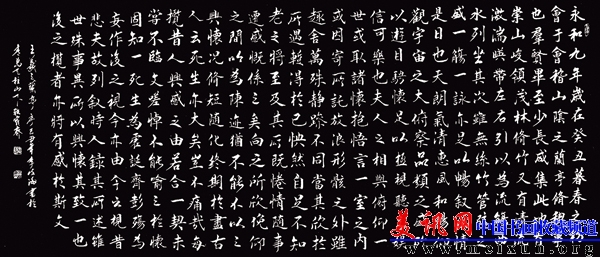 永和九年歲在癸丑暮春
會于會稽山陰之蘭亭脩禊
也群賢畢至少長咸集此地
崇山峻領茂林脩竹又有清
激湍映帶左右引以為流觴
水列坐其次雖無絲竹管弦
盛一觴一詠亦足以暢敘
是日也天朗氣清惠風和暢
觀宇宙之大俯察品類之
以遊目騁懷足以極視聽
信可樂也夫人之相與俯仰一
世或取諸懷抱悟言一室之內
或因寄所託放浪形骸之外雖
趣舍萬殊靜躁不同當其欣於
所遇暫得於己怏然自足不知
老之將至及其所之既惓情隨事
遷感慨係之矣向之所欣俛仰
之間以為陳迹猶不能不以之
興懷況脩短隨化終期於盡古
人云死生亦大矣豈不痛哉每
攬昔人興感之由若合一契未
嘗不臨文嗟悼不能喻之於懷
固知一死生為虛誕齊彭殤為
妄作後之視今亦由今之視昔
悲夫故列敘時人錄其所述雖
世殊事異所以興懷其致一也
後之攬者亦將有感於斯文
王羲之蘭亭序
美讯网
中国书画收藏频道